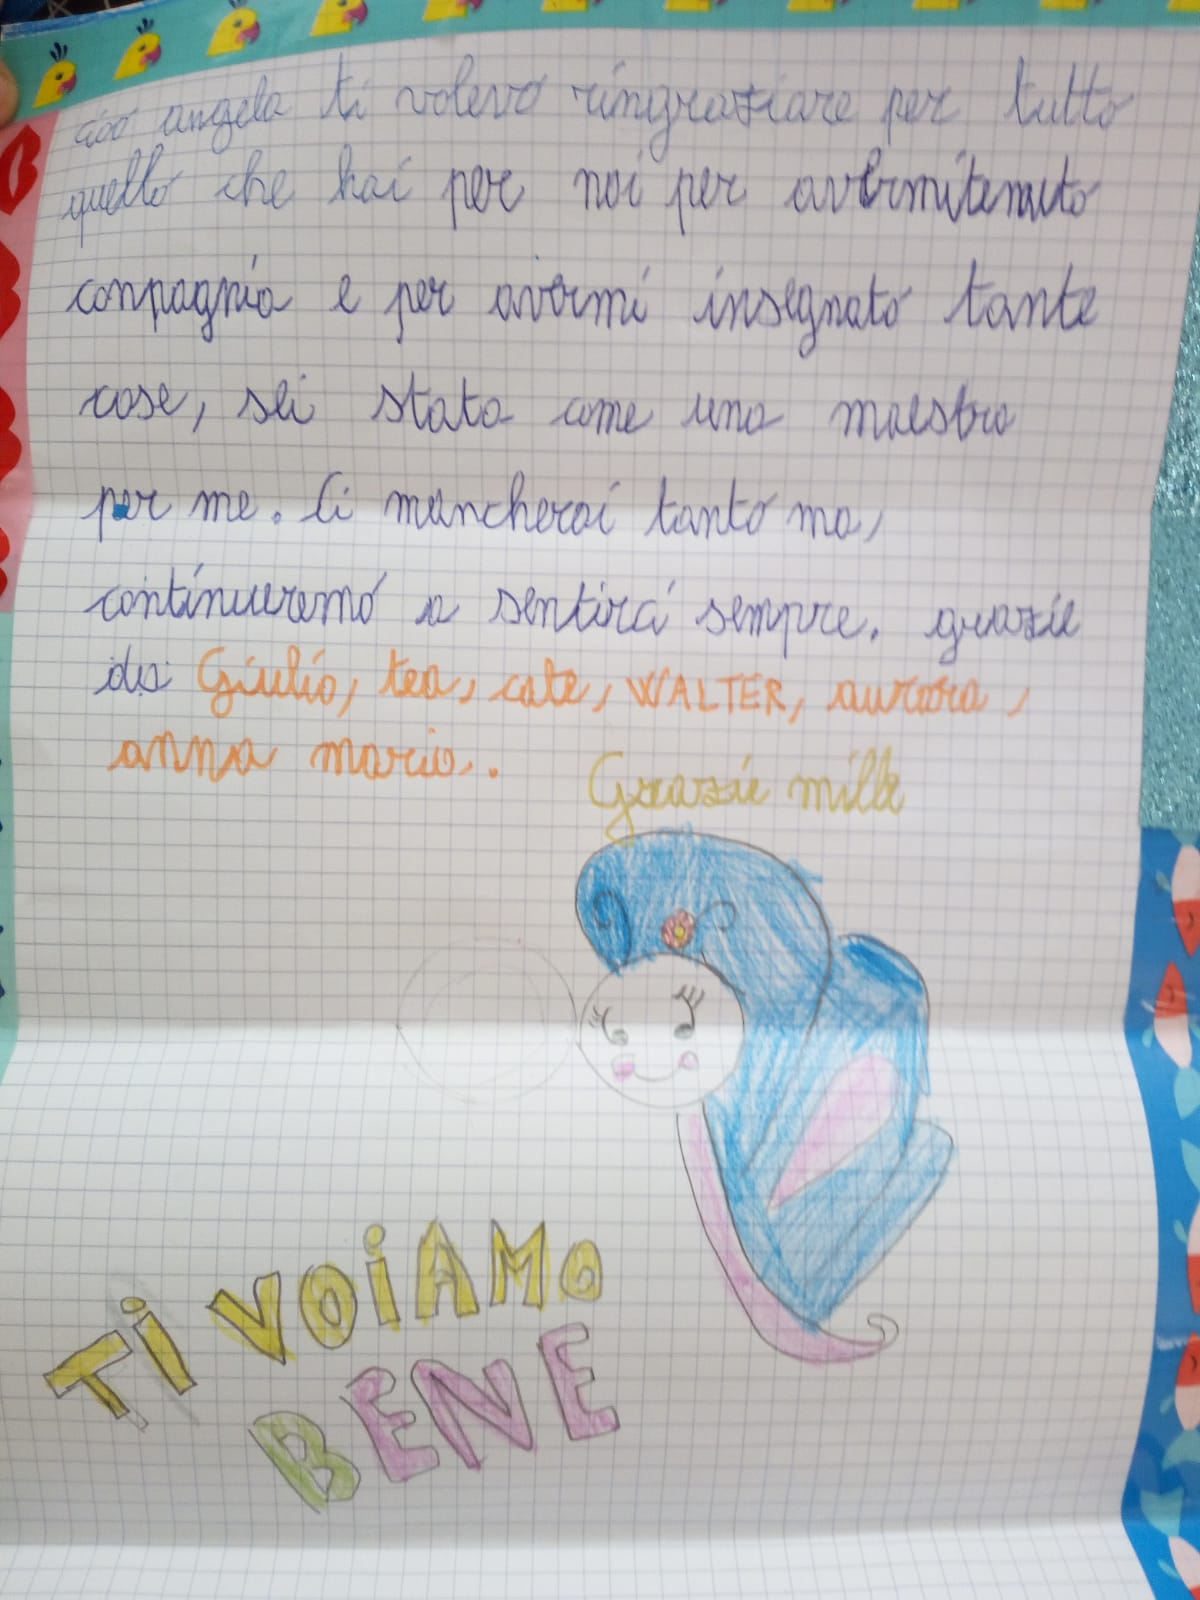 ciao angela ti volevo ringraziare per tutto
quello che hai per noi per avermitenuto
conpagnia e per avermi insegnato tante
cose, sei stata come una maestra
per me. Ci mancherai tanto ma,
continueremo a sentirci sempre. grazie
da Giulio, tea, cate, WALTER, aurora,
anna maria.
Grazie mille
TI VOIAMO
BENE